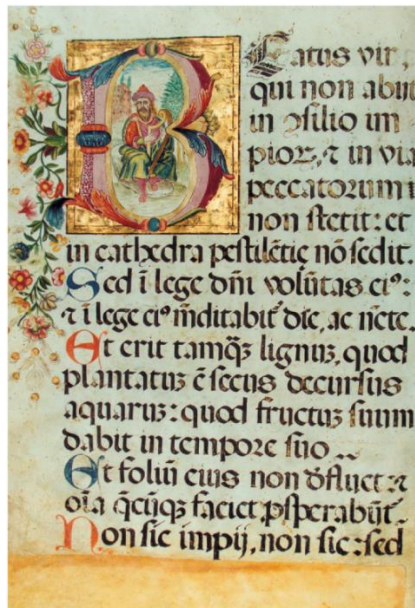 Beatus vir,
qui non abiit
in ꝯsilio im
pioꝝ, ⁊ in via
peccatorum
non stetit: et
in cathedra pestilētie nō sedit.
Sed ī lege dn̄i volūtas eiꝰ:
⁊ ī lege eiꝰ meditabit̄ die, ac nocte.
Et erit tamqȝ lignuȝ, quod
plantatuȝ ē secus decursus
aquaruȝ: quod fructuȝ suum
dabit in tempore suo
Et foliū eius non defluet: ⁊
oīa q̄cūqȝ faciet ꝓsperabūt̄.
Non sic impij, non sic: sed